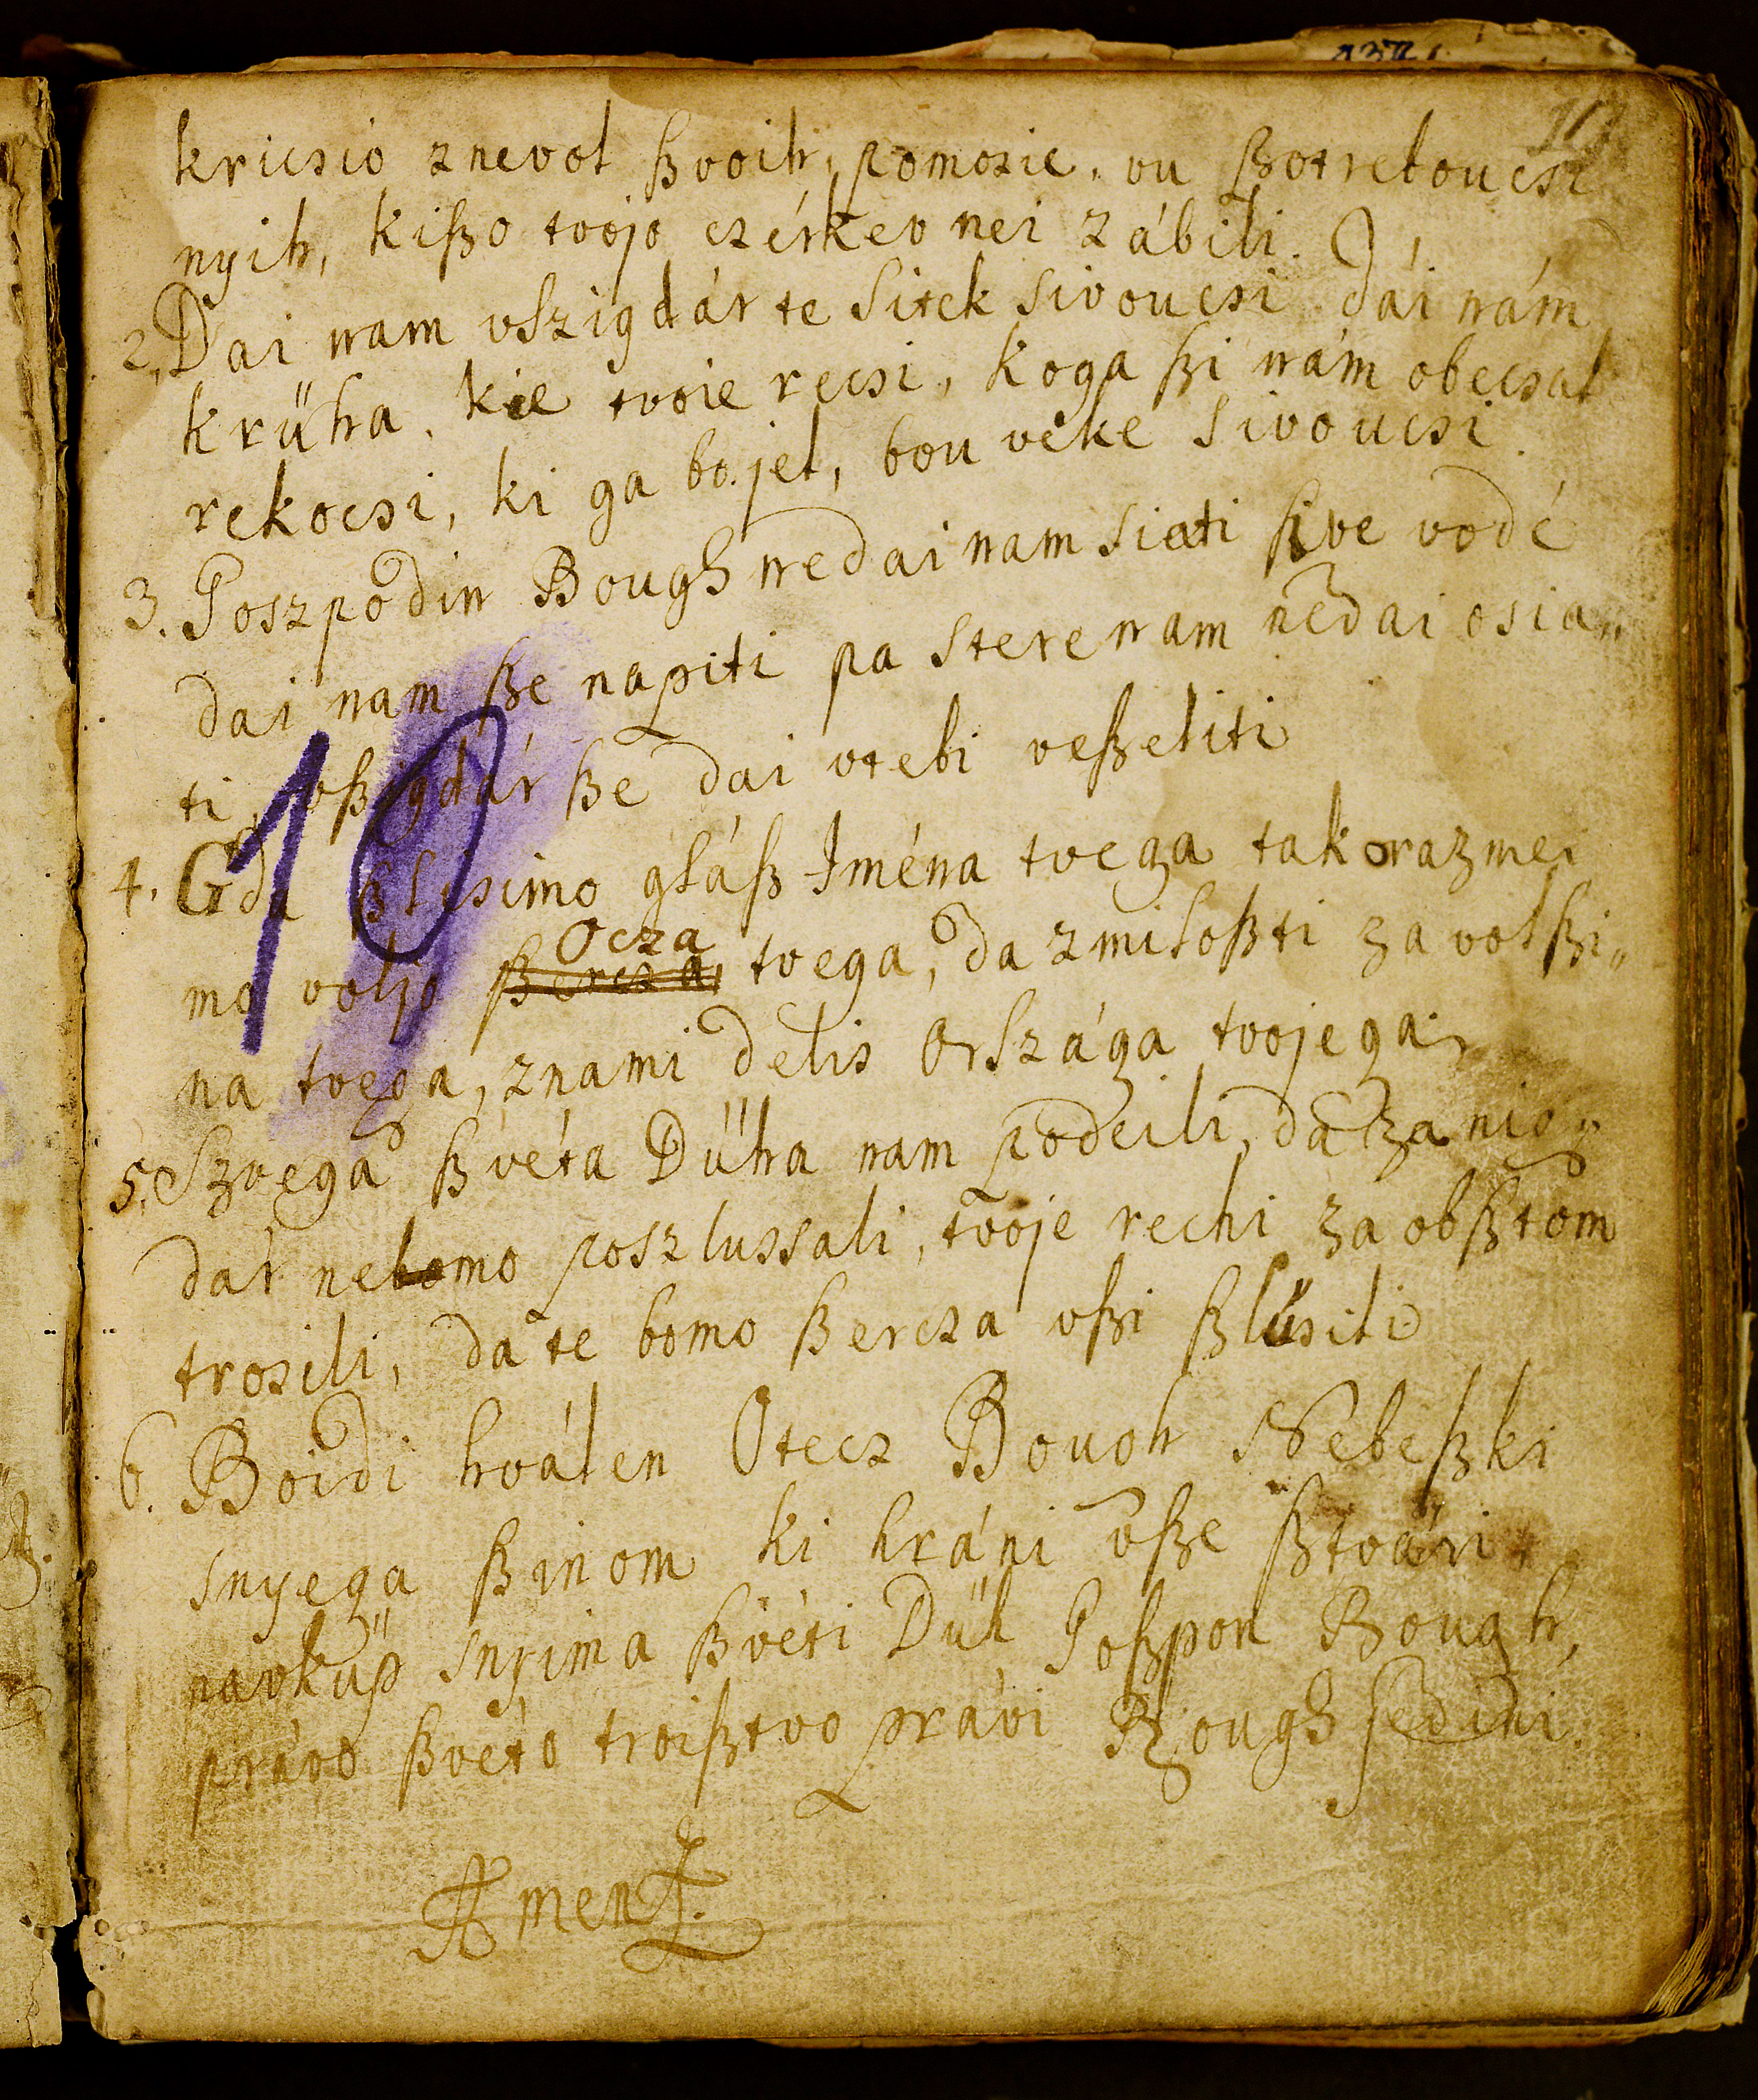 kricsio znevol ßvoih, pomozie, vu ßotreboucsi
nyih, kißo tvojo czérkev nei zábili.
2, Dai nam vszigdár te sitek sivoucsi dái nám
krüha, kie tvoie recsi, koga ßi nám obecsal
rekocsi, ki ga bo jel, bou veke sivoucsi
3. Goszpodin Bough nedai nam siati sive vodé
dai nam ße napiti pa stere nam nedai osia„
ti, vßigdár ße dai vtebi veßeliti
10
4. Gda ßlisimo gláß Iména tvega tak orazmei
mo voljo ßercza Ocza tvega, da zmiloßti za volßi„
na tvega, znami delis Országa tvojega
5. Szvega ßvéta Dűha nam podeili, da za nio„
dar nebomo poszlussali, tvoje rechi za obßtom
trosili, da te bomo ßercza vßi ßlűsiti
6. Boidi hválen Otecz Bouoh Nebeßki
snyega ßinom ki hráni vße ßtvári
navküp snyima ßvéti Dűh Goßpon Bough,
právo ßvéto troißtvo právi Bough jedini.
Amen.